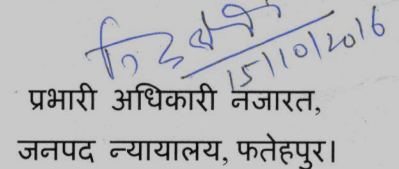 15/10/2016
प्रभारी अधिकारी नजारत,
जनपद न्यायालय, फतेहपुर।